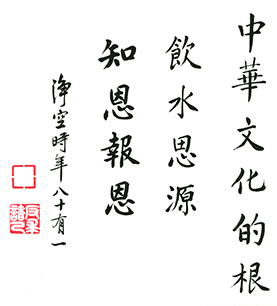 中華文化的根
飲水思源
知恩報恩
淨空時年八十有一